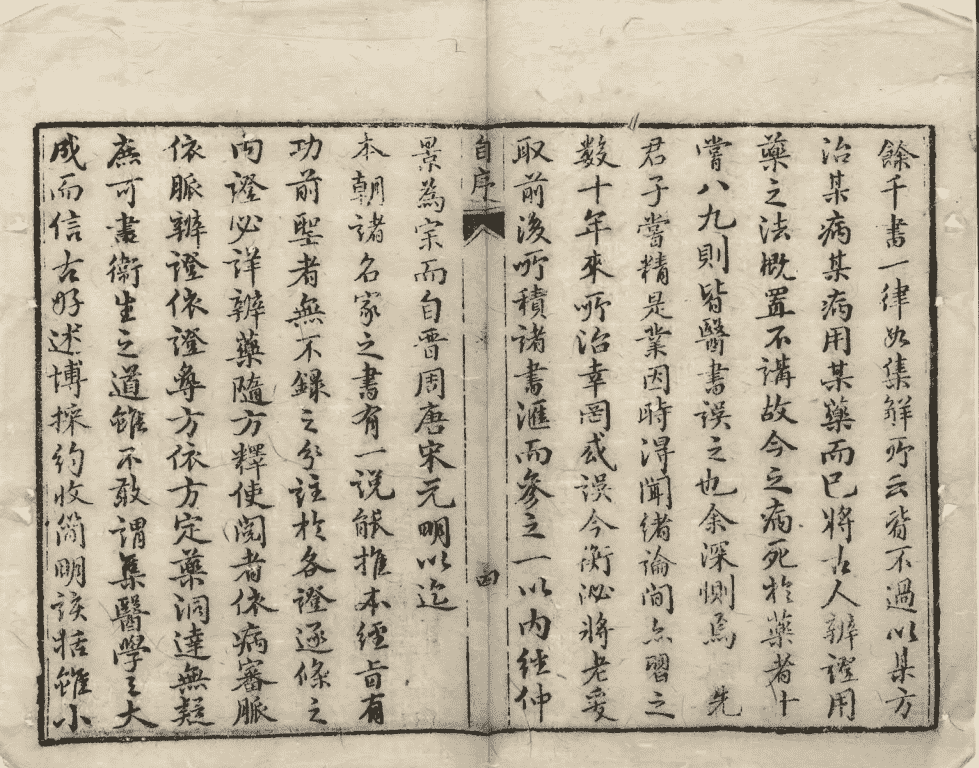 餘千書一律如集解所云皆不過以某方
治某病某病用某藥而已將古人辨證用
藥之法概置不講故今之病死於藥者十
嘗八九則皆醫書誤之也余深惻焉　先
君子嘗精是業因時得聞緒論間亦習之
数十年來所治幸罔或誤今衡泌將老爰
取前後所積諸書滙而參之一以内経仲
自序
四
景為宗而自晋周唐宋元明以迄
本朝諸名家之書有一說能推本經旨有
功前聖者無不録之分註於各證逐條之
内證必詳辨藥隨方釋使閱者依病審脈
依脈辨證依證尋方依方定藥洞達無疑
庶可盡衛生之道雖不敢謂集醫學之大
成而信古好述博採約收簡明該括雖小